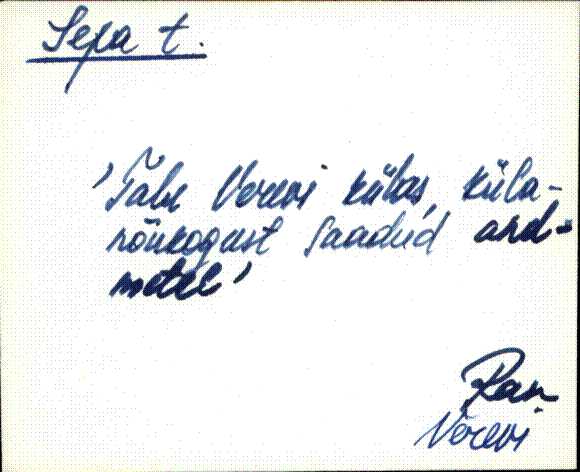 Sepa t.
'Talu Verevi külas, küla-
nõukogust saadud and-
metel'
Ran
Verevi